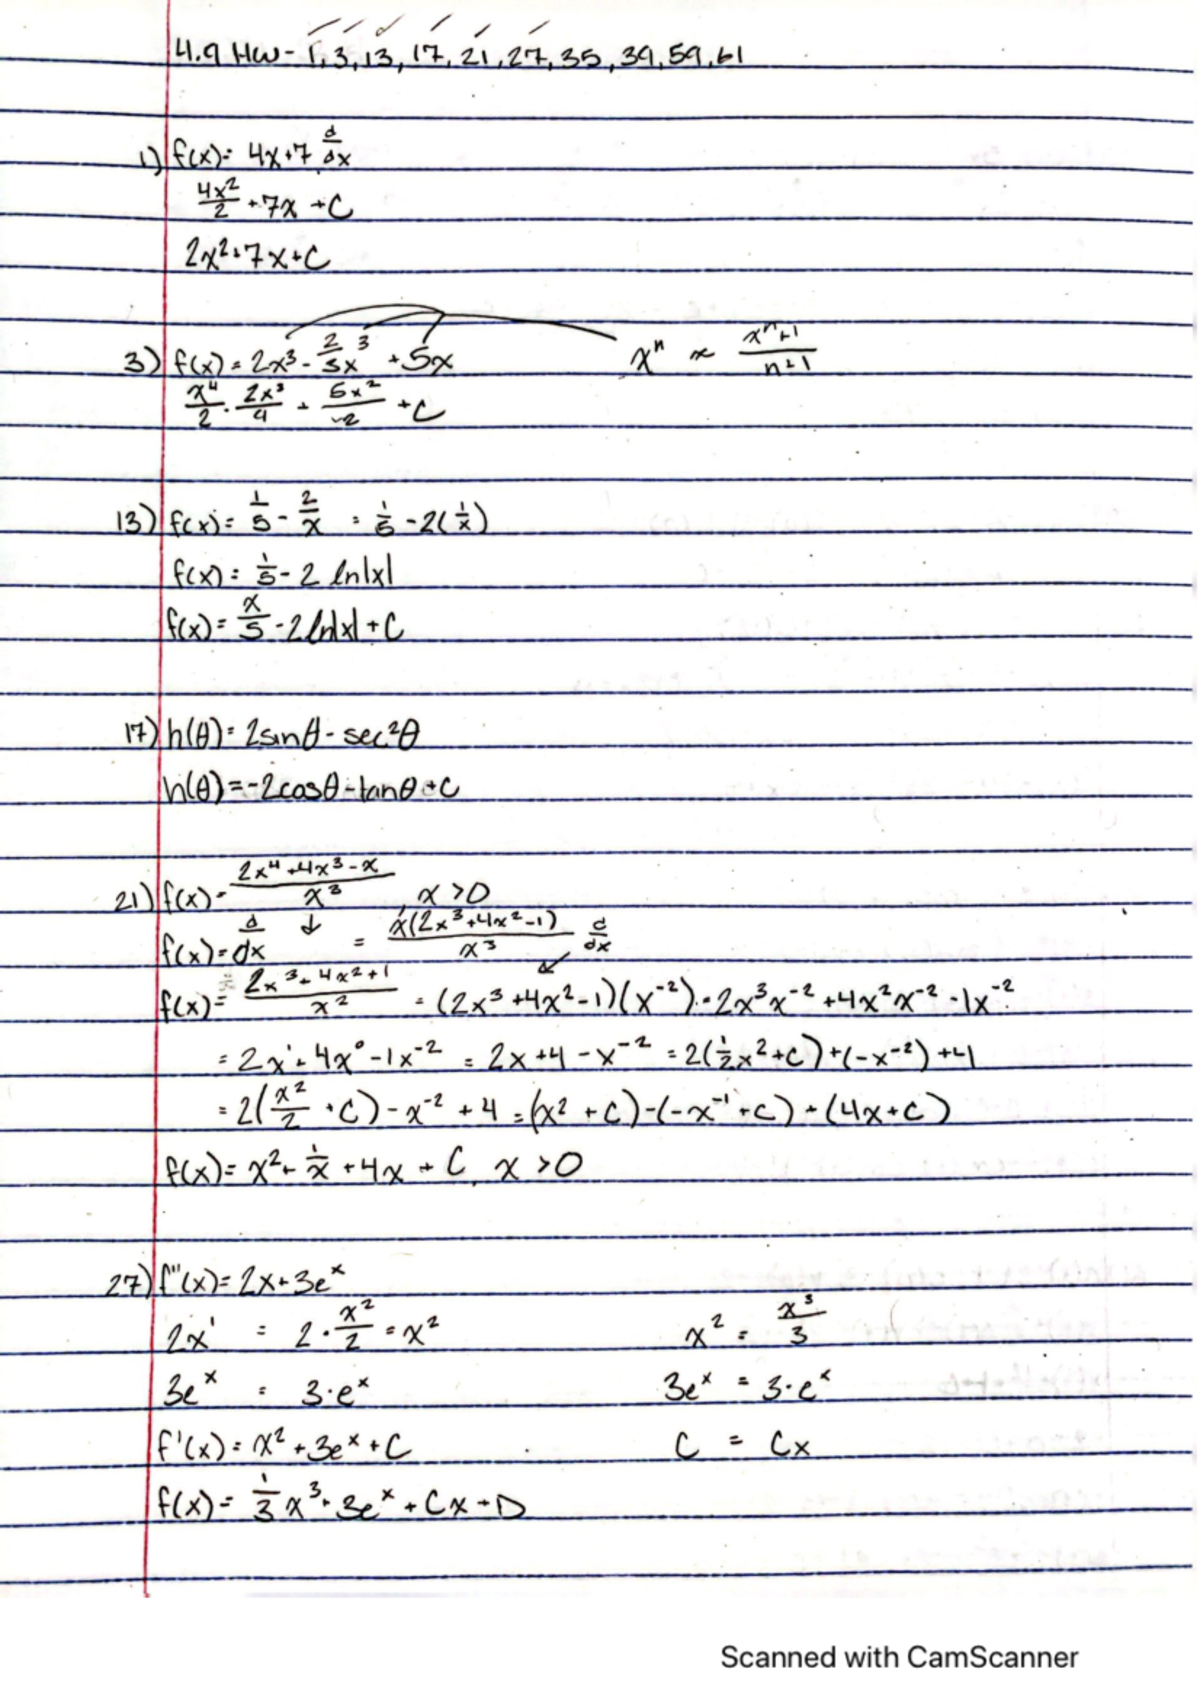 4.9 HW - 1, 3, 13, 17, 21, 27, 35, 39, 59, 61
1) f(x) = 4x+7 d/dx
4x²/2 + 7x + C
2x²+7x+C
3) f(x) = 2x³ - 2/3x³ + 5x xⁿ ≈ xⁿ⁺¹/n+1
x⁴/2 · 2x³/4 + 5x²/2 + C
13) f(x) = 1/5 - 2/x = 1/5 - 2(1/x)
f(x) = 1/5 - 2 ln|x|
f(x) = x/5 - 2 ln|x| + C
17) h(θ) = 2sinθ - sec²θ
h(θ) = -2cosθ - tanθ + C
21) f(x) = 2x⁴+4x³-x/x³, x>0
f(x) = d/dx ↓ = x(2x³+4x²-1)/x³ d/dx
f(x) = 2x³+4x²+1/x² = (2x³+4x²-1)(x⁻²) = 2x³x⁻²+4x²x⁻²-1x⁻²
= 2x¹+4x⁰-1x⁻² = 2x+4-x⁻² = 2(1/2x²+C)+(-x⁻²)+4
= 2(x²/2+C)-x⁻²+4 = (x²+C)-(-x⁻¹+C)+(4x+C)
f(x) = x²+1/x+4x+C, x>0
27) f"(x) = 2x+3eˣ
2x¹ = 2·x²/2 = x² x² = x³/3
3eˣ = 3·eˣ 3eˣ = 3·eˣ
f'(x) = x²+3eˣ+C C = Cx
f(x) = 1/3x³+3eˣ+Cx+D
Scanned with CamScanner